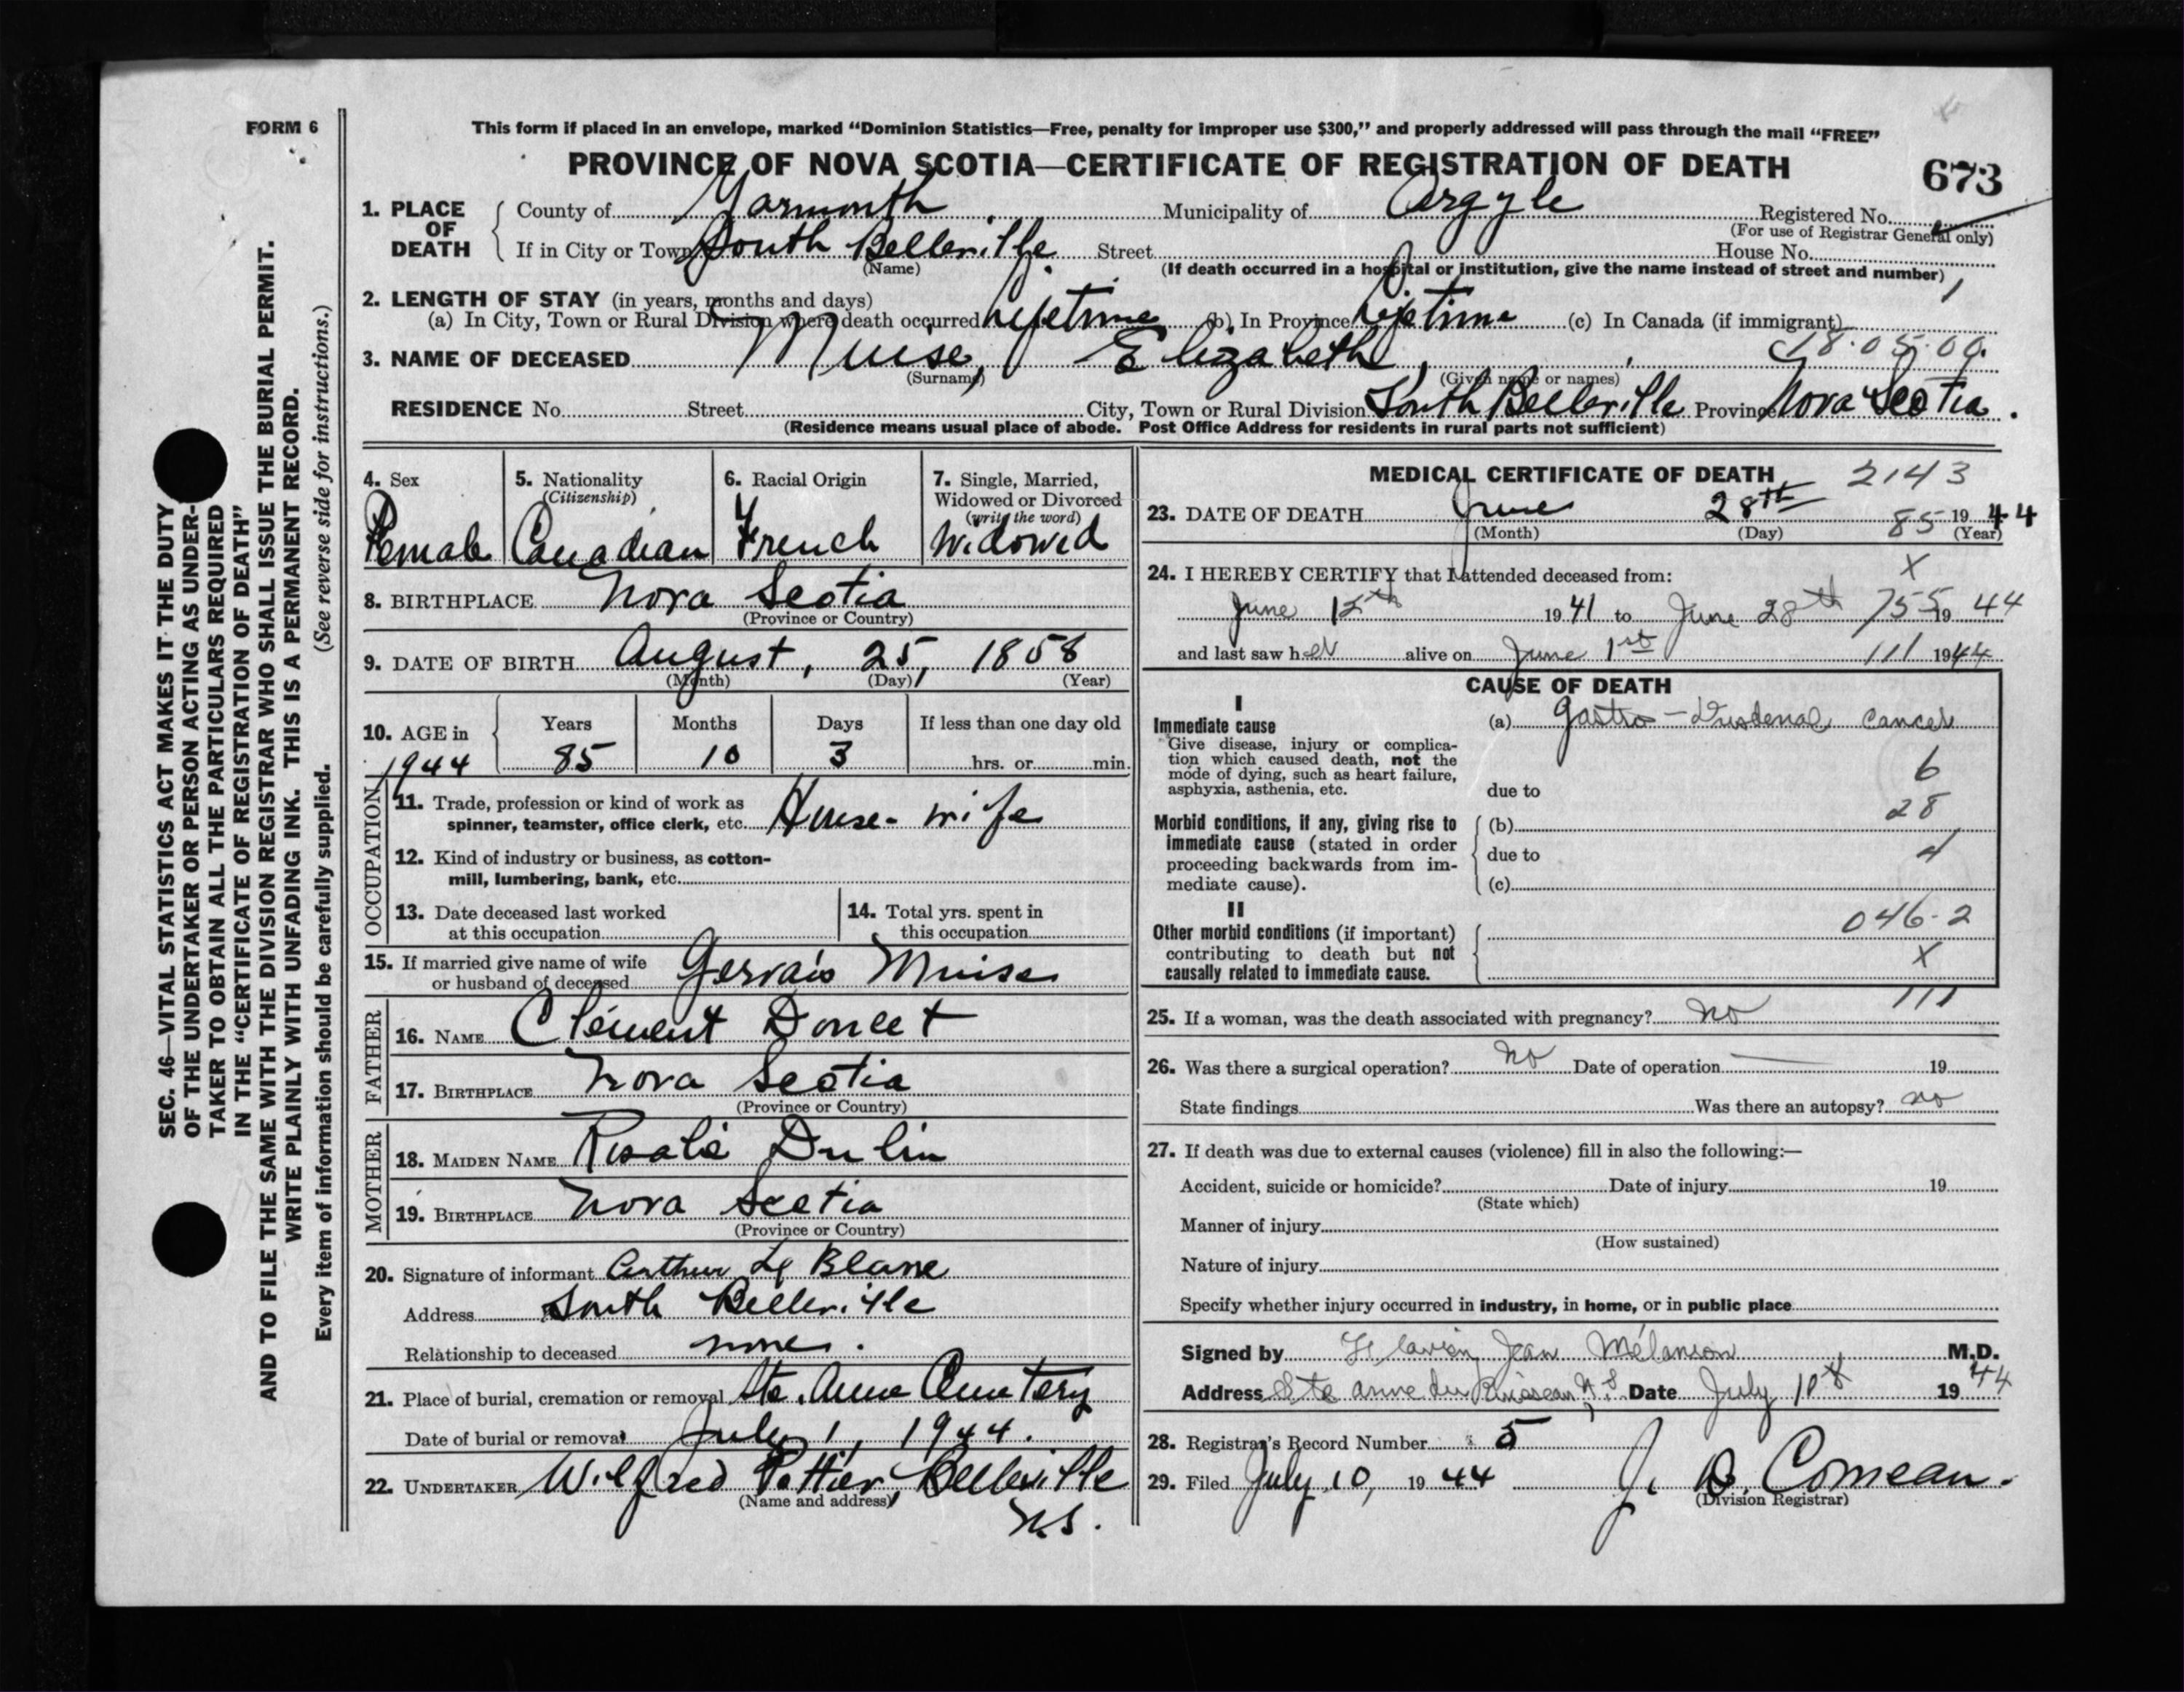 FORM 6
This form if placed in an envelope, marked “Dominion Statistics—Free, penalty for improper use $300,” and properly addressed will pass through the mail “FREE”
PROVINCE OF NOVA SCOTIA—CERTIFICATE OF REGISTRATION OF DEATH
673
1. PLACE OF DEATH County of Yarmouth Municipality of Argyle Registered No.
(For use of Registrar General only)
If in City or Town South Belleville. Street House No.
(Name) (If death occurred in a hospital or institution, give the name instead of street and number)
1
2. LENGTH OF STAY (in years, months and days)
(a) In City, Town or Rural Division where death occurred Lifetime (b) In Province Lifetime (c) In Canada (if immigrant)
18.05.00.
3. NAME OF DECEASED Muise, Elizabeth,
(Surname) (Given name or names)
RESIDENCE No. Street City, Town or Rural Division South Belleville Province Nova Scotia.
(Residence means usual place of abode. Post Office Address for residents in rural parts not sufficient)
4. Sex Female
5. Nationality (Citizenship) Canadian
6. Racial Origin French
7. Single, Married, Widowed or Divorced (write the word) Widowed
8. BIRTHPLACE Nova Scotia
(Province or Country)
9. DATE OF BIRTH August, 25, 1858
(Month) (Day) (Year)
10. AGE in 1944 Years 85 Months 10 Days 3 If less than one day old hrs. or min.
OCCUPATION
11. Trade, profession or kind of work as
spinner, teamster, office clerk, etc. House-wife
12. Kind of industry or business, as cotton-
mill, lumbering, bank, etc.
13. Date deceased last worked
at this occupation
14. Total yrs. spent in
this occupation
15. If married give name of wife
or husband of deceased Gervais Muise
FATHER
16. NAME Clément Doucet
17. BIRTHPLACE Nova Scotia
(Province or Country)
MOTHER
18. MAIDEN NAME Rosalie Dulin
19. BIRTHPLACE Nova Scotia
(Province or Country)
20. Signature of informant Arthur Le Blanc
Address South Belleville
Relationship to deceased none.
21. Place of burial, cremation or removal Ste. Anne Cemetery
Date of burial or removal July 1, 1944.
22. UNDERTAKER Wilfred Pottier, Belleville
(Name and address)
N.S.
MEDICAL CERTIFICATE OF DEATH 2143
23. DATE OF DEATH June 28th 1944
(Month) (Day) 85 (Year)
24. I HEREBY CERTIFY that I attended deceased from: X
June 15th 1941 to June 28th 755 1944
and last saw her alive on June 1st 111 1944
CAUSE OF DEATH
I
Immediate cause
Give disease, injury or complica-
tion which caused death, not the
mode of dying, such as heart failure,
asphyxia, asthenia, etc.
(a) Gastro-Duodenal Cancer
6
due to
28
Morbid conditions, if any, giving rise to
immediate cause (stated in order
proceeding backwards from im-
mediate cause).
(b)
due to 4
(c)
II
Other morbid conditions (if important)
contributing to death but not
causally related to immediate cause.
046-2
X
111
25. If a woman, was the death associated with pregnancy? No
26. Was there a surgical operation? No Date of operation — 19
State findings Was there an autopsy? no
27. If death was due to external causes (violence) fill in also the following:—
Accident, suicide or homicide? Date of injury 19
(State which)
Manner of injury
(How sustained)
Nature of injury
Specify whether injury occurred in industry, in home, or in public place
Signed by Flavien Jean Mélanson M.D.
Address Ste Anne du Ruisseau N.S Date July 1944
28. Registrar's Record Number 5
29. Filed July 10, 1944 J. B. Comeau.
(Division Registrar)
SEC. 46—VITAL STATISTICS ACT MAKES IT THE DUTY
OF THE UNDERTAKER OR PERSON ACTING AS UNDER-
TAKER TO OBTAIN ALL THE PARTICULARS REQUIRED
IN THE “CERTIFICATE OF REGISTRATION OF DEATH”
AND TO FILE THE SAME WITH THE DIVISION REGISTRAR WHO SHALL ISSUE THE BURIAL PERMIT.
WRITE PLAINLY WITH UNFADING INK. THIS IS A PERMANENT RECORD.
Every item of information should be carefully supplied. (See reverse side for instructions.)